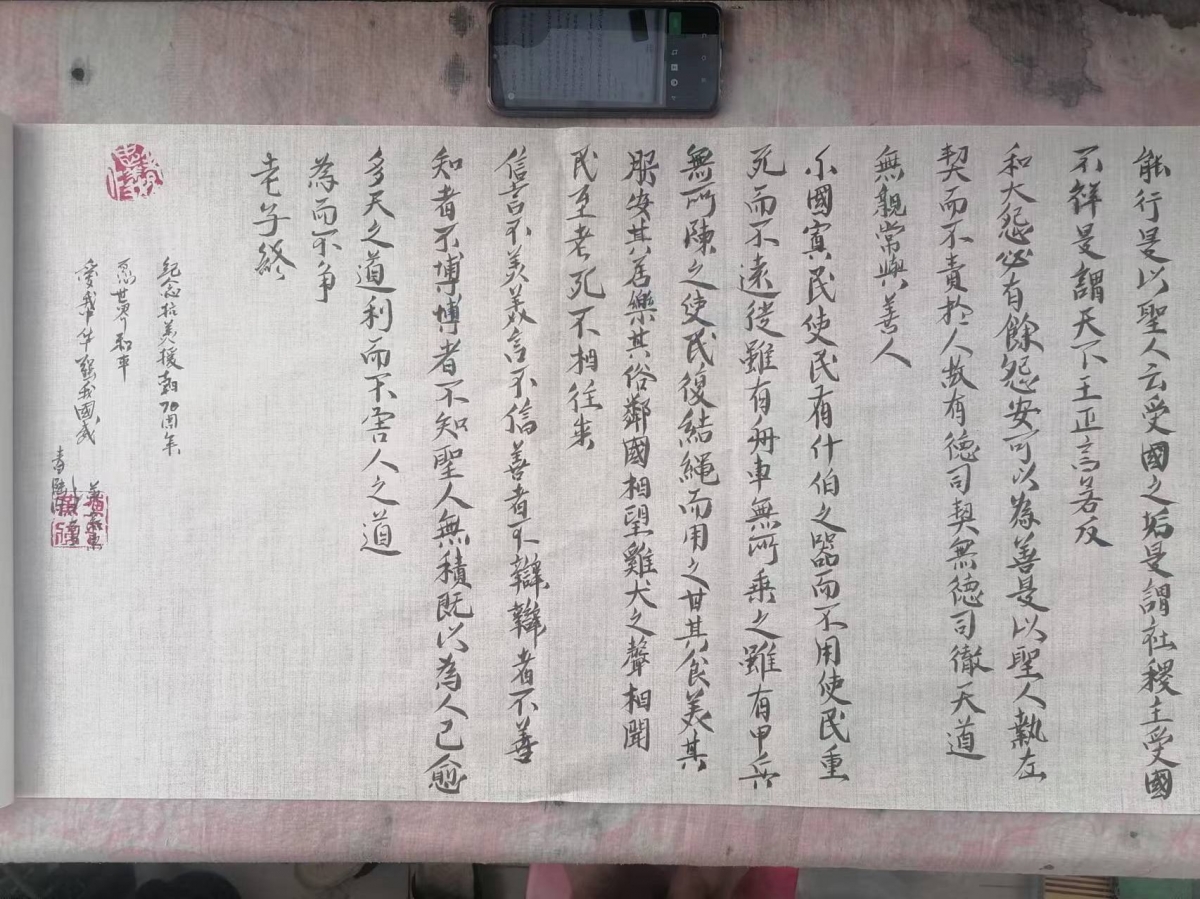 能行是以聖人云受國之垢是謂社稷主受國
不祥是謂天下王正言若反
和大怨必有餘怨安可以為善是以聖人執左
契而不責於人故有德司契無德司徹天道
無親常與善人
小國寡民使民有什伯之器而不用使民重
死而不遠徙雖有舟車無所乘之雖有甲兵
無所陳之使民復結繩而用之甘其食美其
服安其居樂其俗鄰國相望雞犬之聲相聞
民至老死不相往來
信言不美美言不信善者不辯辯者不善
知者不博博者不知聖人無積既以為人己愈
多天之道利而不害人之道
為而不争
老子終
紀念抗美援朝70周年
愿世界和平
愛我中华強我國威